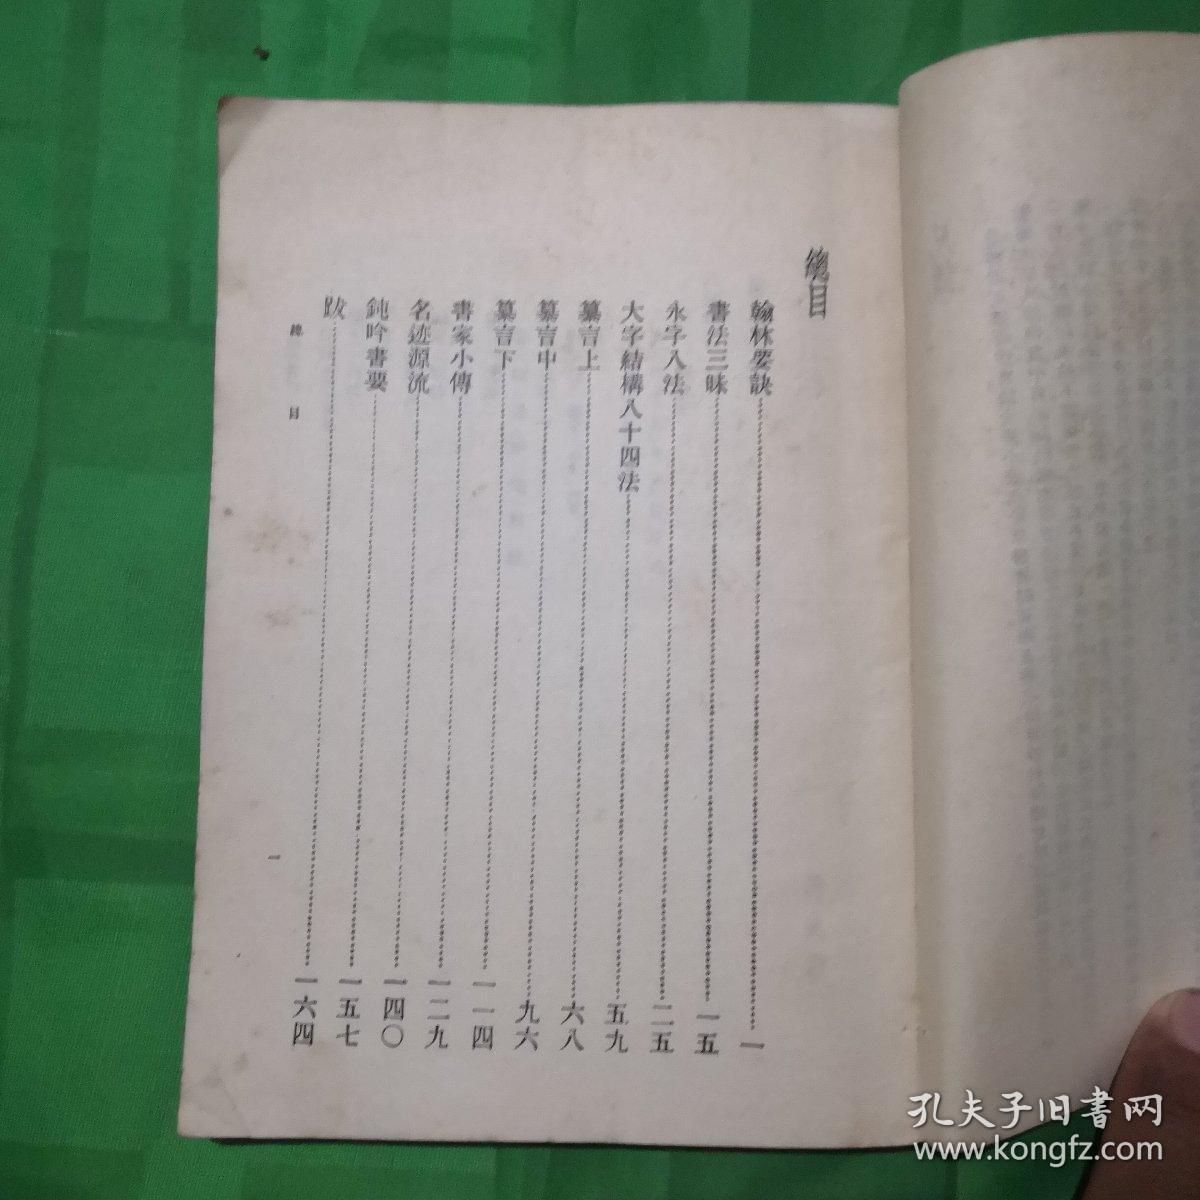 總目
翰林要訣 一
書法三昧 一五
永字八法 二五
大字結構八十四法 五九
纂言上 六八
纂言中 九六
纂言下 一一四
書家小傳 一二九
名迹源流 一四〇
鈍吟書要 一五七
跋 一六四
總目
一
孔夫子旧书网
www.kongfz.com